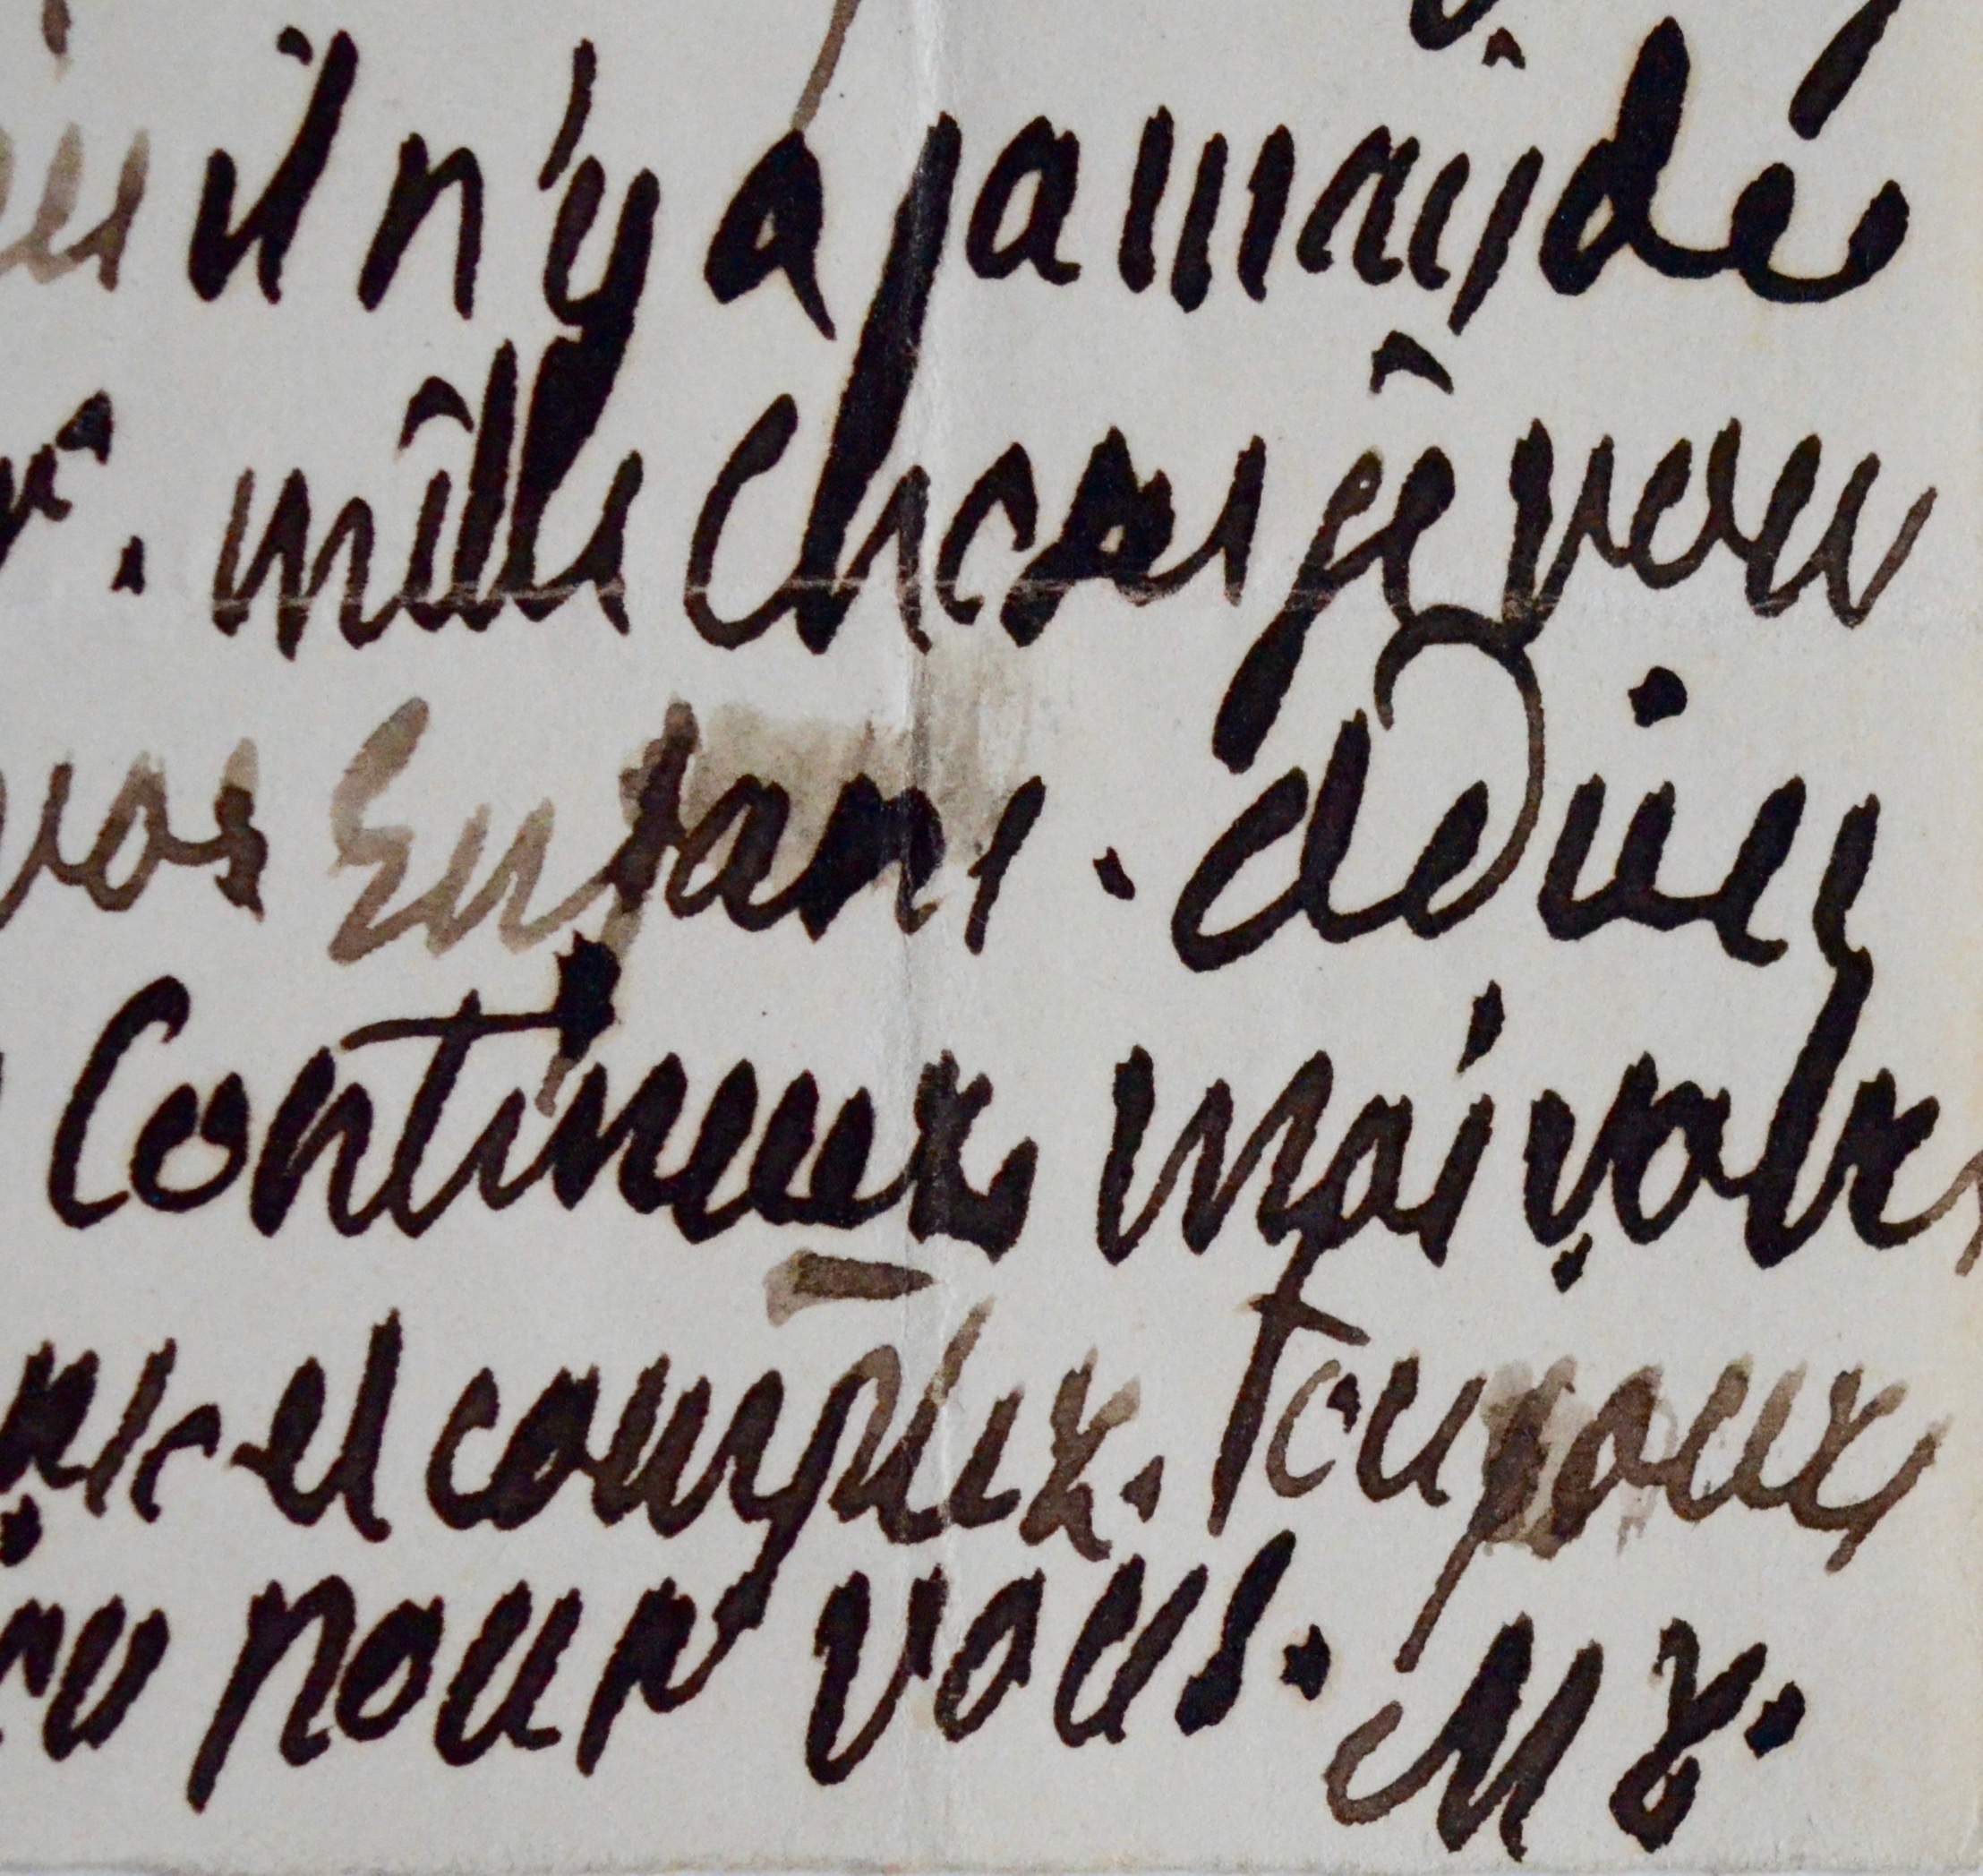 il n'y a jamais de
. mille choses je vous
vos Enfans . adieu
Continuez moi votre
et comptez. Toujours
pour vous. M